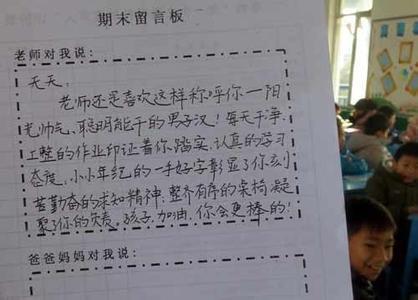 期末留言板
老师对我说:
天天:
老师还是喜欢这样称呼你一阳
光帅气、聪明能干的男子汉!每天干净、
工整的作业印证着你踏实、认真的学习
态度,小小年纪的一手好字彰显了你刻
苦勤奋的求知精神,整齐有序的桌椅凝
聚了你的负责,孩子,加油,你会更棒的!
爸爸妈妈对我说: